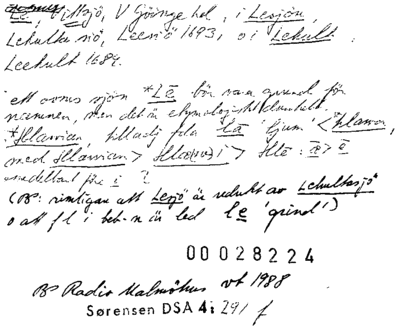 Le, Vittsjö, V Göinge hd, i Lesjön,
Lehultasjö, Leesiö 1693, o i Lehult
Leehult 1684.
ett ovons sjön *Lē bör vara grund för
namnen, men det är etymologiskt dunkelt.
*Hlawian, till adj fda lā 'ljum' < *hlawa,
med Hlāwian > Hlǣ(w)i > Hlē : ǣ > ē
omedelbart före i ?
(BP: rimligare att Lesjö är redukt av Lehultasjö
o att fl i bet-n är led le 'grind')
00028224
BP Radio Malmöhus vt 1988
Sørensen DSA 4: 291 f